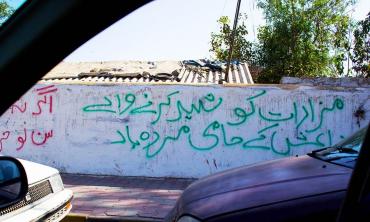 مزارات کو شہید کرنے والے
داعش کے حامی مردہ باد
اگر
سن لو